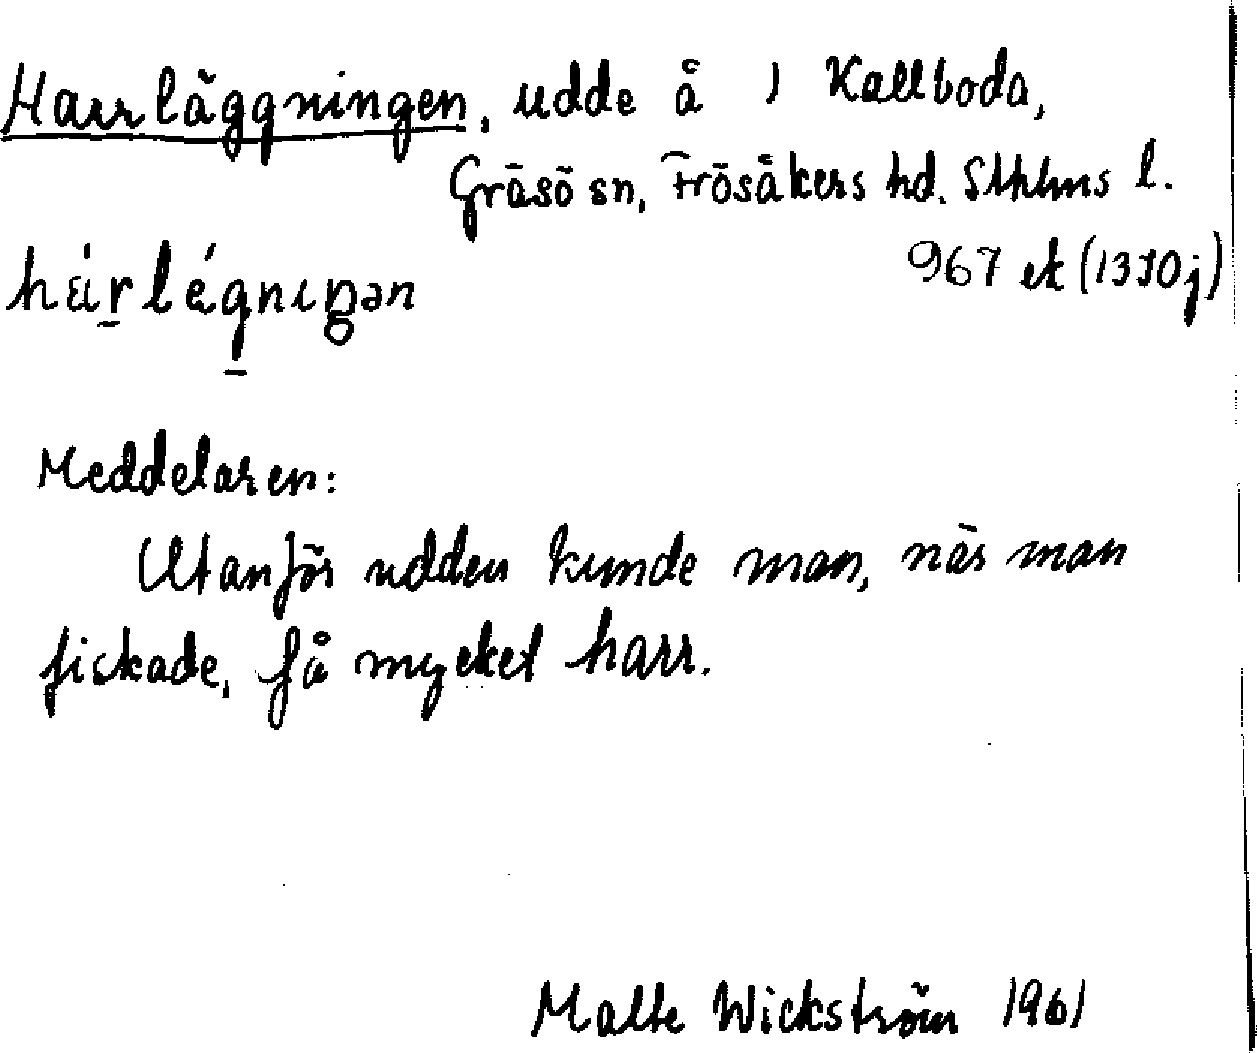 Harrläggningen, udde å 1 Kallboda,
Gräsö sn, Frösåkers hd. Sthlms l.
967 ek (13I0j)
Meddelaren:
Utanför udden kunde man, när man
fiskade, få mycket harr.
Malte Wickström 1961